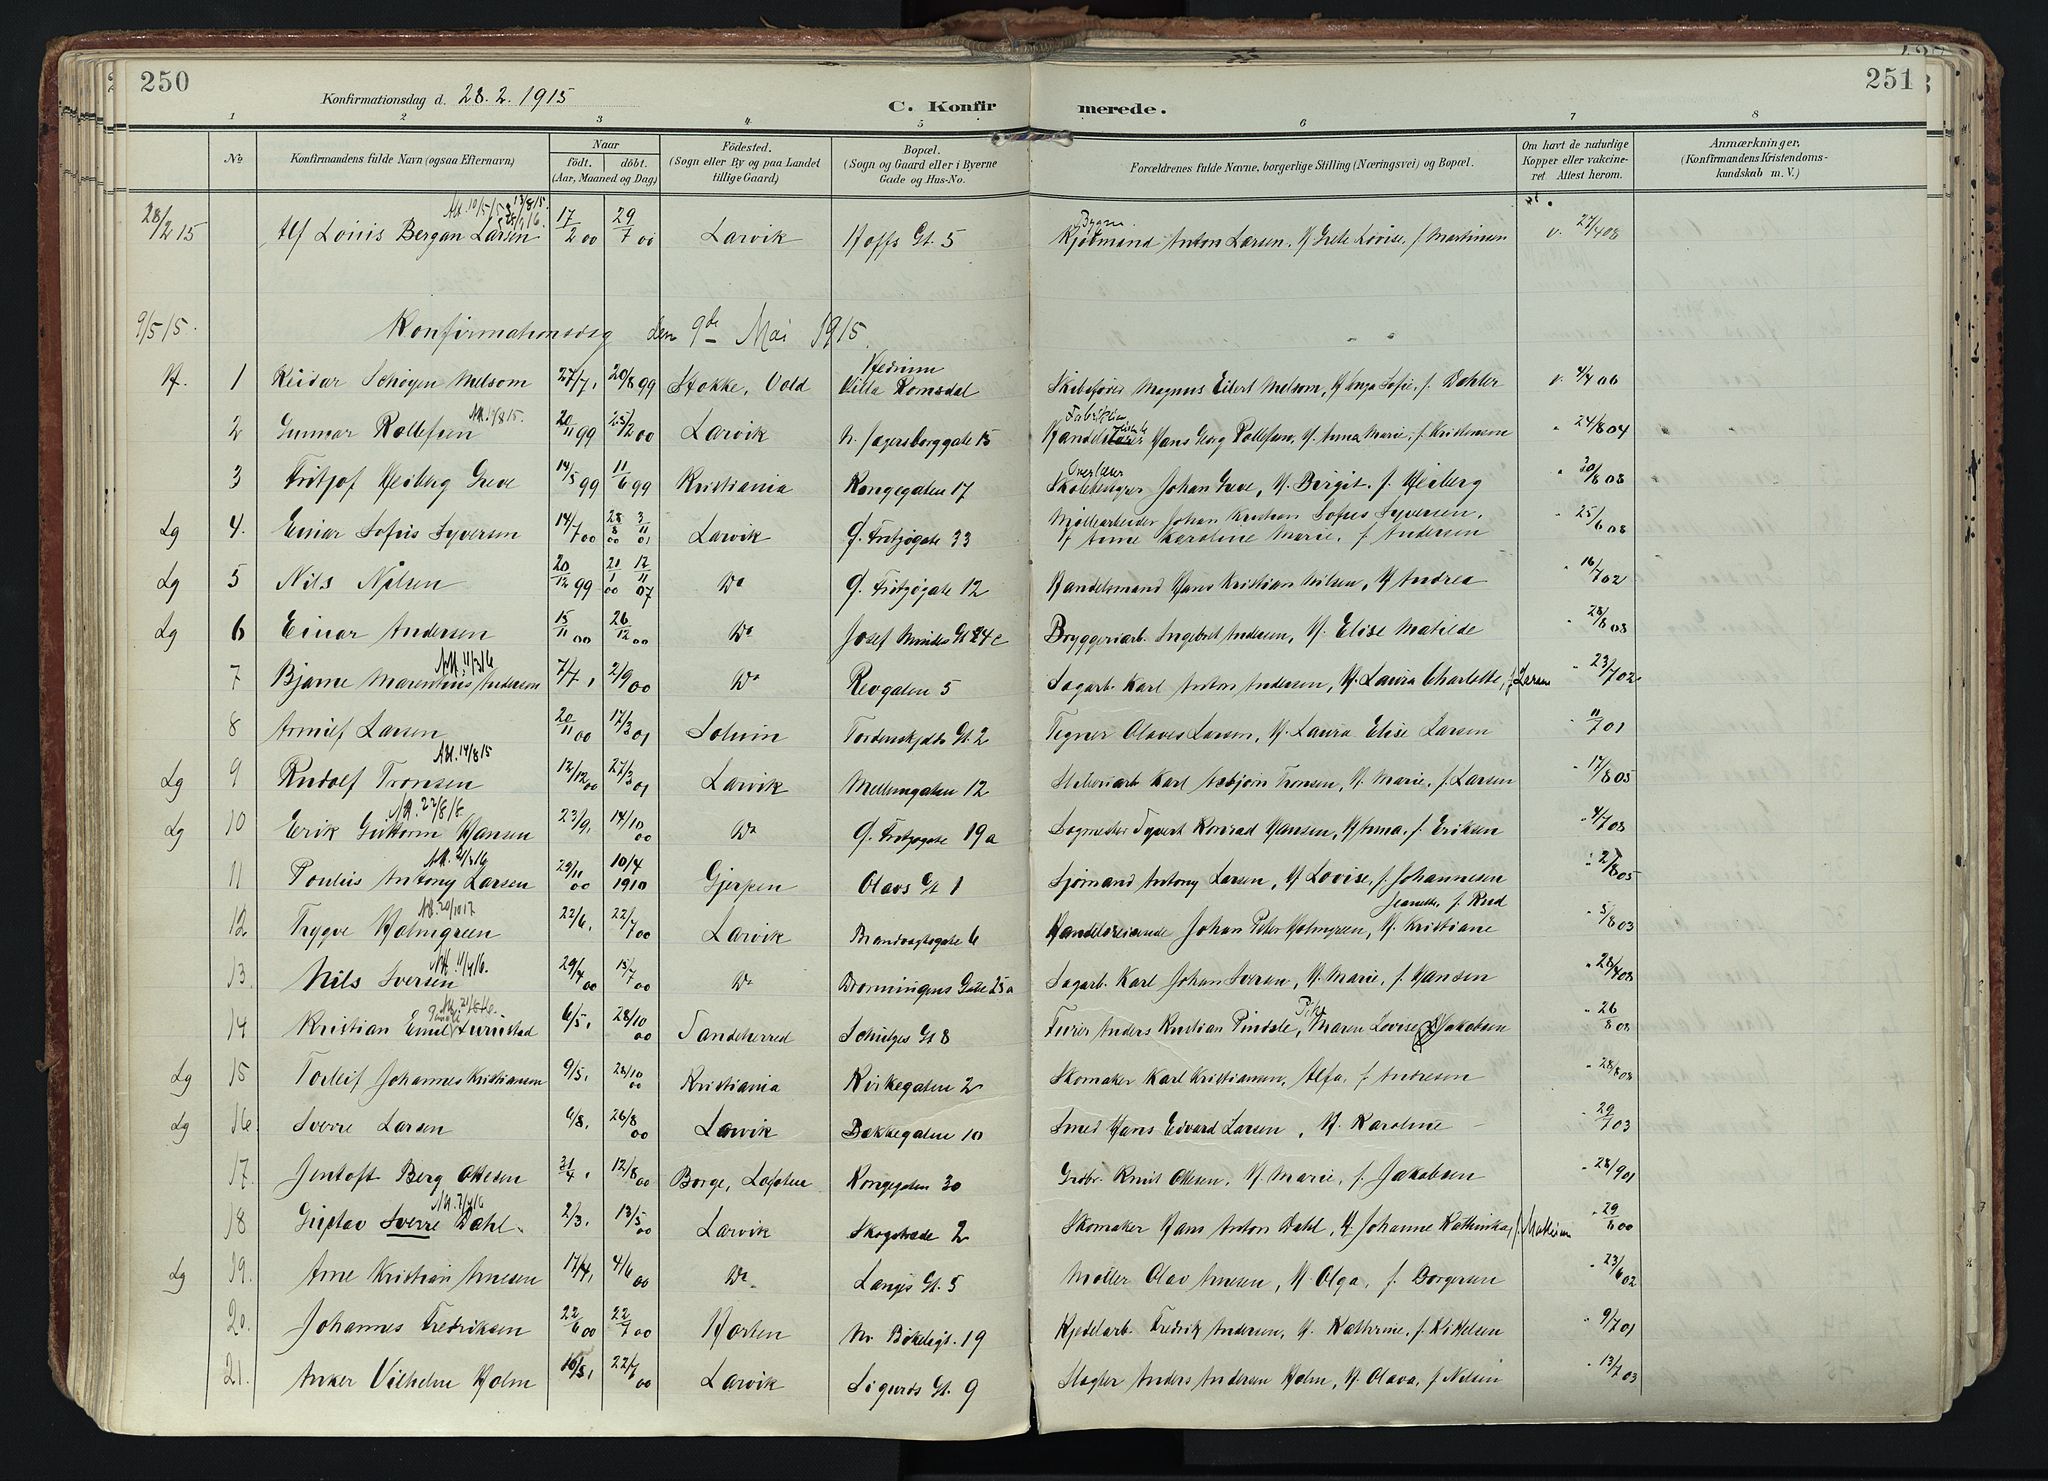 250
251
Konfirmationsdag d. 28. 2. 1915
C. Konfirmerede.
1 2 3 4 5 6 7 8
No
Konfirmandens fulde Navn (ogsaa Efternavn)
Naar
født. døbt.
(Aar, Maaned og Dag)
Fødested.
(Sogn eller By og paa Landet
tillige Gaard)
Bopæl.
(Sogn og Gaard eller i Byerne
Gade og Hus-No.
Forældrenes fulde Navne, borgerlige Stilling (Næringsvei) og Bopæl.
Om havt de naturlige
Kopper eller vakcine-
ret Attest herom.
Anmærkninger,
(Konfirmandens Kristendoms-
kundskab m. V.)
28/2 15 Alf Louis Bergan Larsen 17/2 00 29/7 00 Larvik Hoffs Gt. 5 Kjøbmand Anton Larsen, H Grete Lovise, f Martinsen v. 27/4 08
9/5 15. Konfirmationsdag den 9de Mai 1915.
H. 1 Reidar Schøyen Melsom 27/7, 20/8 99 Stokke, Vold Hedrum Villa Romsdal Skibsfører Magnus Eilert Melsom, H Inga Sofie, f. Dahler v. 4/7 06
2 Gunnar Rollefsen Att. 14/8 15. 20/11 99 25/2 00 Larvik N. Jegersborggate 15 Hans Georg Rollefsen, H. Anna Marie, f. Kristensen " 24/8 04
3 Fritjof Heiberg Greve 14/5 99 11/6 99 Kristiania Kongegaten 17 Overlærer Johan Greve, H. Birgit f. Heiberg " 30/8 08
Lg 4. Einar Sofus Syversen 14/7 00 28/8 00 3/11 01 Larvik G. Fritzøgate 33 Møllearbeider Johan Kristian Sofus Syversen, H Anne Karoline Marie, f Andersen " 25/6 08
Lg 5 Nils Nilsen 20/12 99 21/1 00 12/11 07 Do G. Fritzøgate 12 Handelsmand Hans Kristian Nilsen, H Andrea " 16/7 02
Lg 6 Einar Andersen 15/11 00 26/12 00 Do Josef Mindes Gt 24c Bryggeriarb. Ingebret Andersen, H. Elise Matilde " 28/8 08
7 Bjarne Marentius Andersen Att. 11/3 16 7/7, 2/9 00 Do Revgaten 5 Sagarb. Karl Anton Andersen, H. Laura Charlotte, f. Larsen " 23/7 02
8 Arnulf Larsen 20/11 00 17/3 01 Solum Tordenskjolds Gt. 2 Tegner Olaves Larsen, H. Laura Elise Larsen " 11/7 01
Lg 9 Rudolf Tronsen Att. 14/8 15 12/12 00 27/3 01 Larvik Mellemgaten 12 Sliberiarb Karl Asbjørn Tronsen, H. Marie, f. Larsen " 17/8 05
Lg 10 Erik Guttorm Hansen Att. 22/8 18 23/9, 14/10 00 Do G. Fritzøgate 19a Sagmester Syvert Konrad Hansen, H Anna, f. Eriksen " 4/7 08
11 Paulus Antony Larsen Att. 21/3 16 29/11 00 10/4 1910 Gjerpen Olavs Gt 1 Sjømand Antony Larsen, H Lovise, f. Johannesen " 2/8 05
12. Trygve Holmgreen Att. 20/10 17 22/6, 22/7 00 Larvik Brandvagtsgate 6 Handelsreisende Johan Peter Holmgreen, H. Kristiane Jeanette, f. Rud " 5/8 03
13. Nils Sversen Att. 11/4 16. 29/4 00 15/7 00 Do Dronningens Gate 25a Sagarb. Karl Johan Sversen, H. Marie, f. Hansen " 28/4 08
14 Kristian Emil 6/5, 28/10 00 Tandeherred Schulzes Gt 8 Anders Kristian Pindsle, Pike Maren Lovise Jakobsen " 26/8 08
Lg 15 Torleif Johannes Kristiansen 9/5, 28/10 00 Kristiania Kirkegaten 2 Skomaker Karl Kristiansen, Alfa, f Andresen " 28/8 08
Lg 16. Sverre Larsen 6/8, 26/8 00 Larvik Bækkegaten 10 Smed Hans Edvard Larsen, H. Karoline " 29/7 03
17. Jentoft Berg Ottesen 21/4, 12/8 00 Borge, Lofoten Kongegaten 30 Knut Ottesen, H. Marie, f. Jakobsen " 28/9 01
18 Gustav Sverre Dahl. Att. 7/4 16 2/3, 13/5 00 Larvik Skogstræde 2 Skomaker Hans Anton Dahl, H. Johanne Kathinka, f. " 29/6 00
Lg 19. Arne Kristian Arnesen 17/4, 4/6 00 Do Langes Gt. 5 Møller Olav Arnesen, H Olga, f. Borgersen " 23/6 02
20. Johannes Fredriksen 22/6 00 22/7 00 Horten Nr Bøkeligt. 19 Kjedelarb. Fredrik Andersen, H. Kathrine, f. Kittelsen " 9/7 01
21. Anker Vilhelm Holm 16/5, 22/7 00 Larvik Sigurds Gt. 9 Slagter Anders Andersen Holm, H. Olava, f Nilsen " 13/7 03